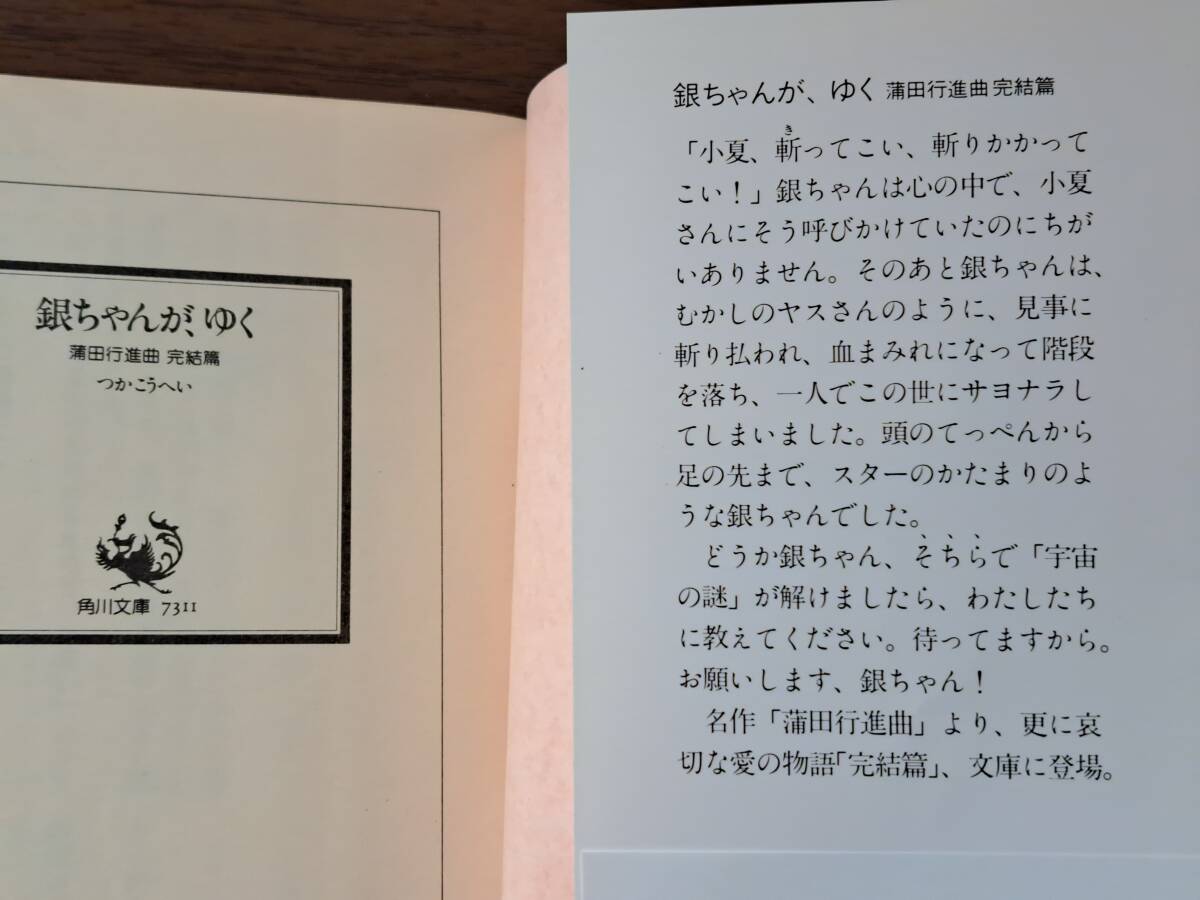 銀ちゃんが、ゆく
蒲田行進曲 完結篇
つかこうへい
角川文庫 7311
銀ちゃんが、ゆく 蒲田行進曲 完結篇
き
「小夏、斬ってこい、斬りかかって
こい！」銀ちゃんは心の中で、小夏
さんにそう呼びかけていたのにちが
いありません。そのあと銀ちゃんは、
むかしのヤスさんのように、見事に
斬り払われ、血まみれになって階段
を落ち、一人でこの世にサヨナラし
てしまいました。頭のてっぺんから
足の先まで、スターのかたまりのよ
うな銀ちゃんでした。
どうか銀ちゃん、そちらで「宇宙
の謎」が解けましたら、わたしたち
に教えてください。待ってますから。
お願いします、銀ちゃん！
名作「蒲田行進曲」より、更に哀
切な愛の物語「完結篇」、文庫に登場。